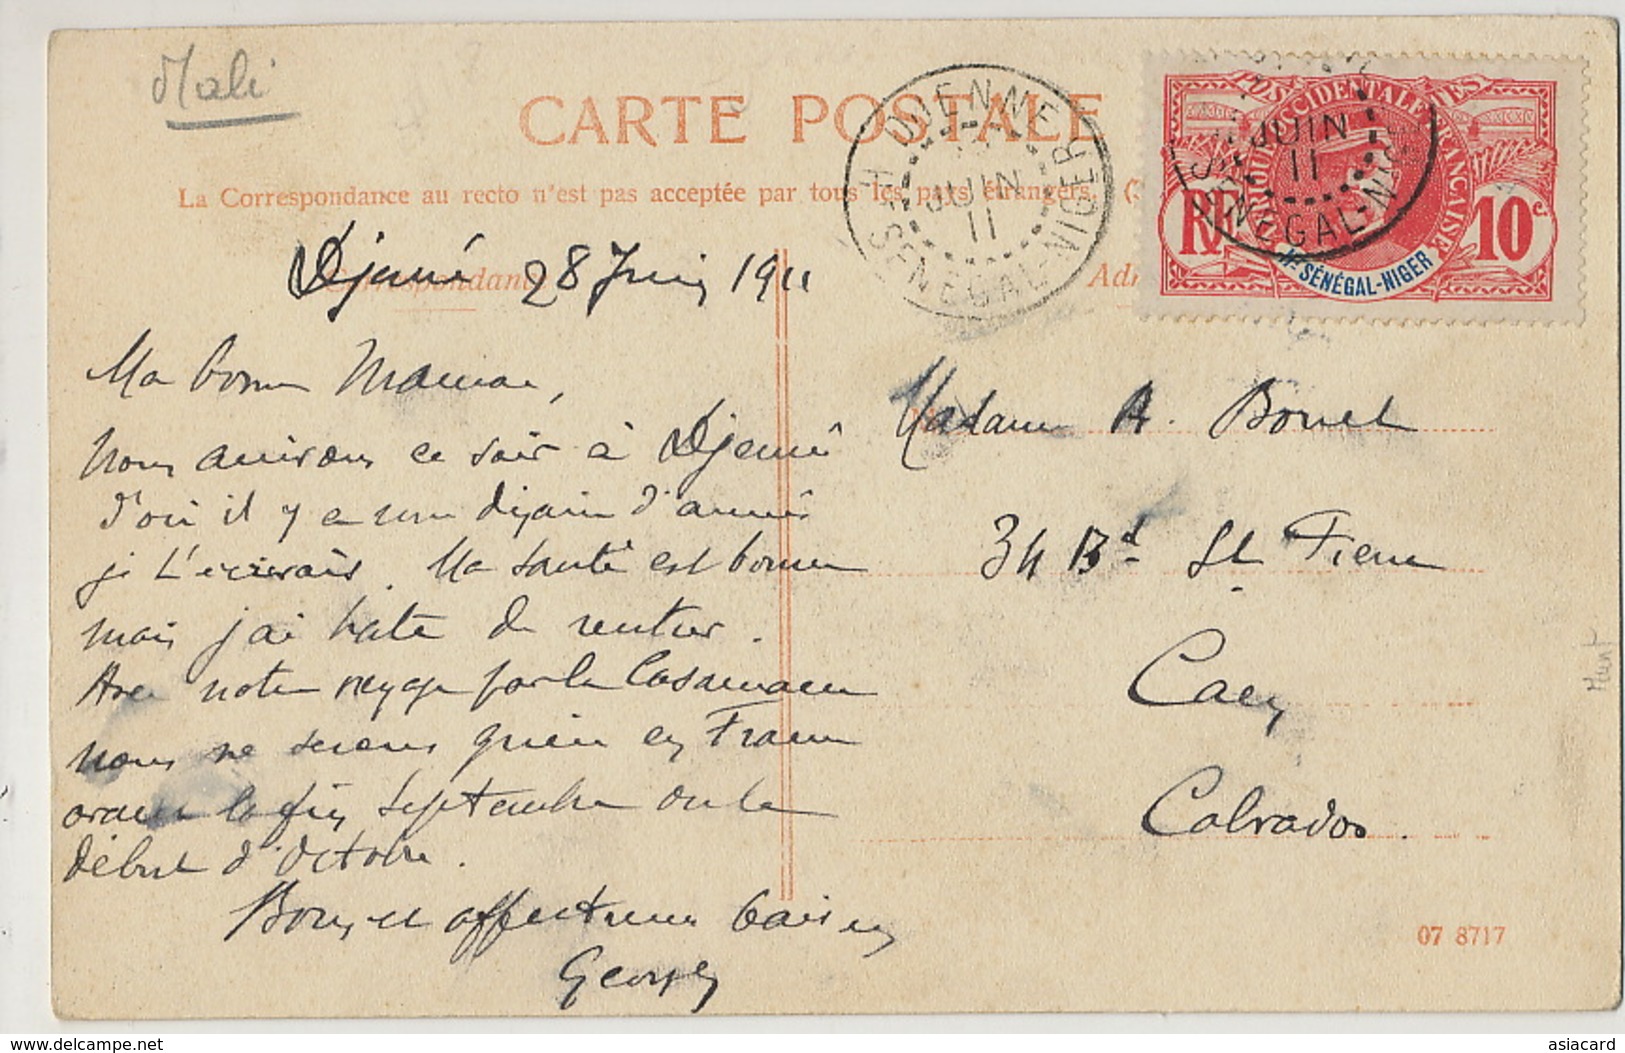 Mali
CARTE POSTALE
La Correspondance au recto n'est pas acceptée par tous les pays étrangers.
Correspondance
Djenné 28 Juin 1911
Ma bonne Maman,
Nous arrivons ce soir à Djenné
d'où il y a une dizaine d'années
je t'écrivais. Ma santé est bonne
mais j'ai hâte de rentrer.
Avec notre voyage par la Casamance
nous ne serons qu'en France
avant la fin Septembre ou le
début d'Octobre.
Bons et affectueux baisers
Georges
DJENNE
JUIN
11
Hᵗ SÉNÉGAL-NIGER
AFRIQUE OCCIDENTALE FRANÇAISE
POSTES
RF
10 c.
Hᵗ SÉNÉGAL-NIGER
JUIN
11
SÉNÉGAL-NIGER
Madame A. Bonnel
34 Bᵈ St Pierre
Caen
Calvados.
07 8717
asiacard
www.delcampe.net